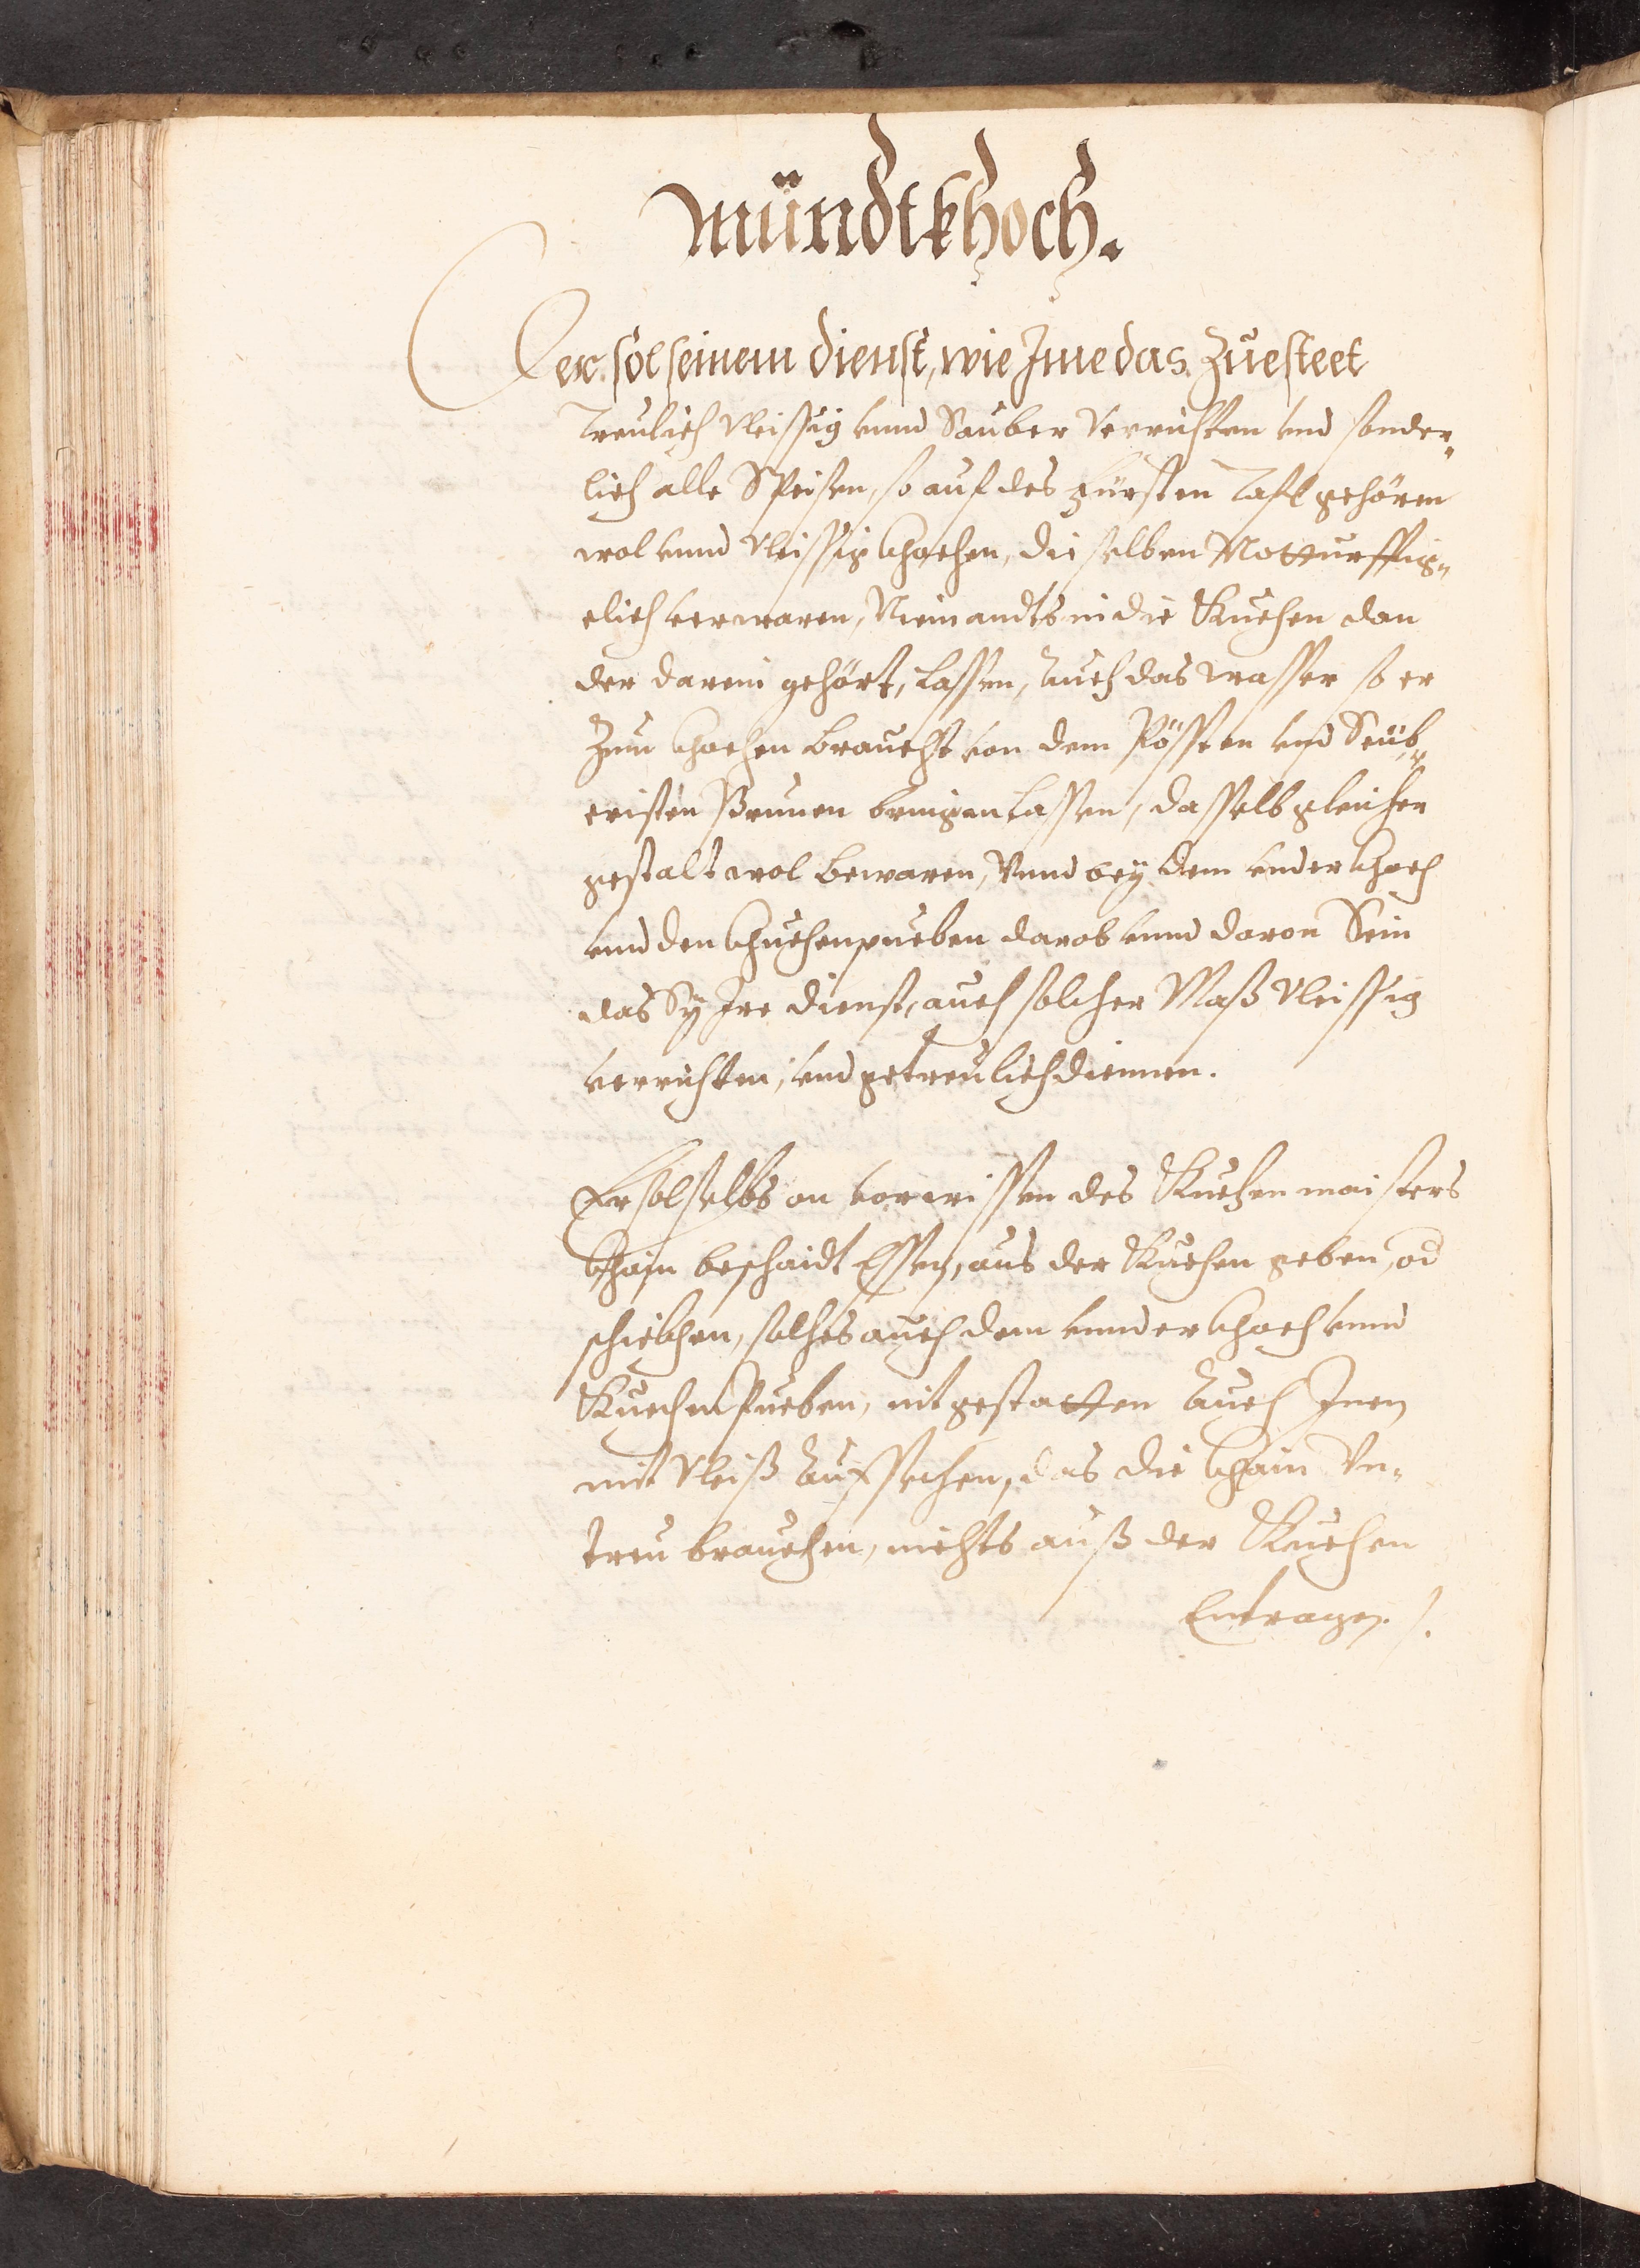 Mündtkhoch.
Der sol seinem dienst, wie Ime das Zuesteet
Treulich Vleissig vnnd Sauber Verrichten vnd sonder„
lich alle Speisen, so auf des Fürsten Tafl gehören
wol vnnd Vleissig khochen, die selben Notturfftig„
clich verwaren, Niemandts in die Kuchen dan
der darein gehört, lassen, Auch das wasser so er
Zum khochen braucht von dem Pössten vnd Seüb„
eristen Brunen bringen lassen, dasselb gleicher
gestalt wol bewaren, Vnnd bey dem vnder khoch
vnd den khuchenpueben darob vnnd daron Sein
das Sy Ire dienst, auch solcher Maß Vleissig
verrichten, vnd getreulich diennen.
Er sol selbs on vorwissen des Kuchen maisters
khain beschaidt Essen, aus der Kuchen geben, od
schickhen, solches auch dem vnnder khoch vnnd
Kuechen Pueben, nit gestatten Auch Inen
mit Vleiß Aufsechen, das die khain Vn„
treu brauchen, nichts auß der Kuchen
Entragen. /.